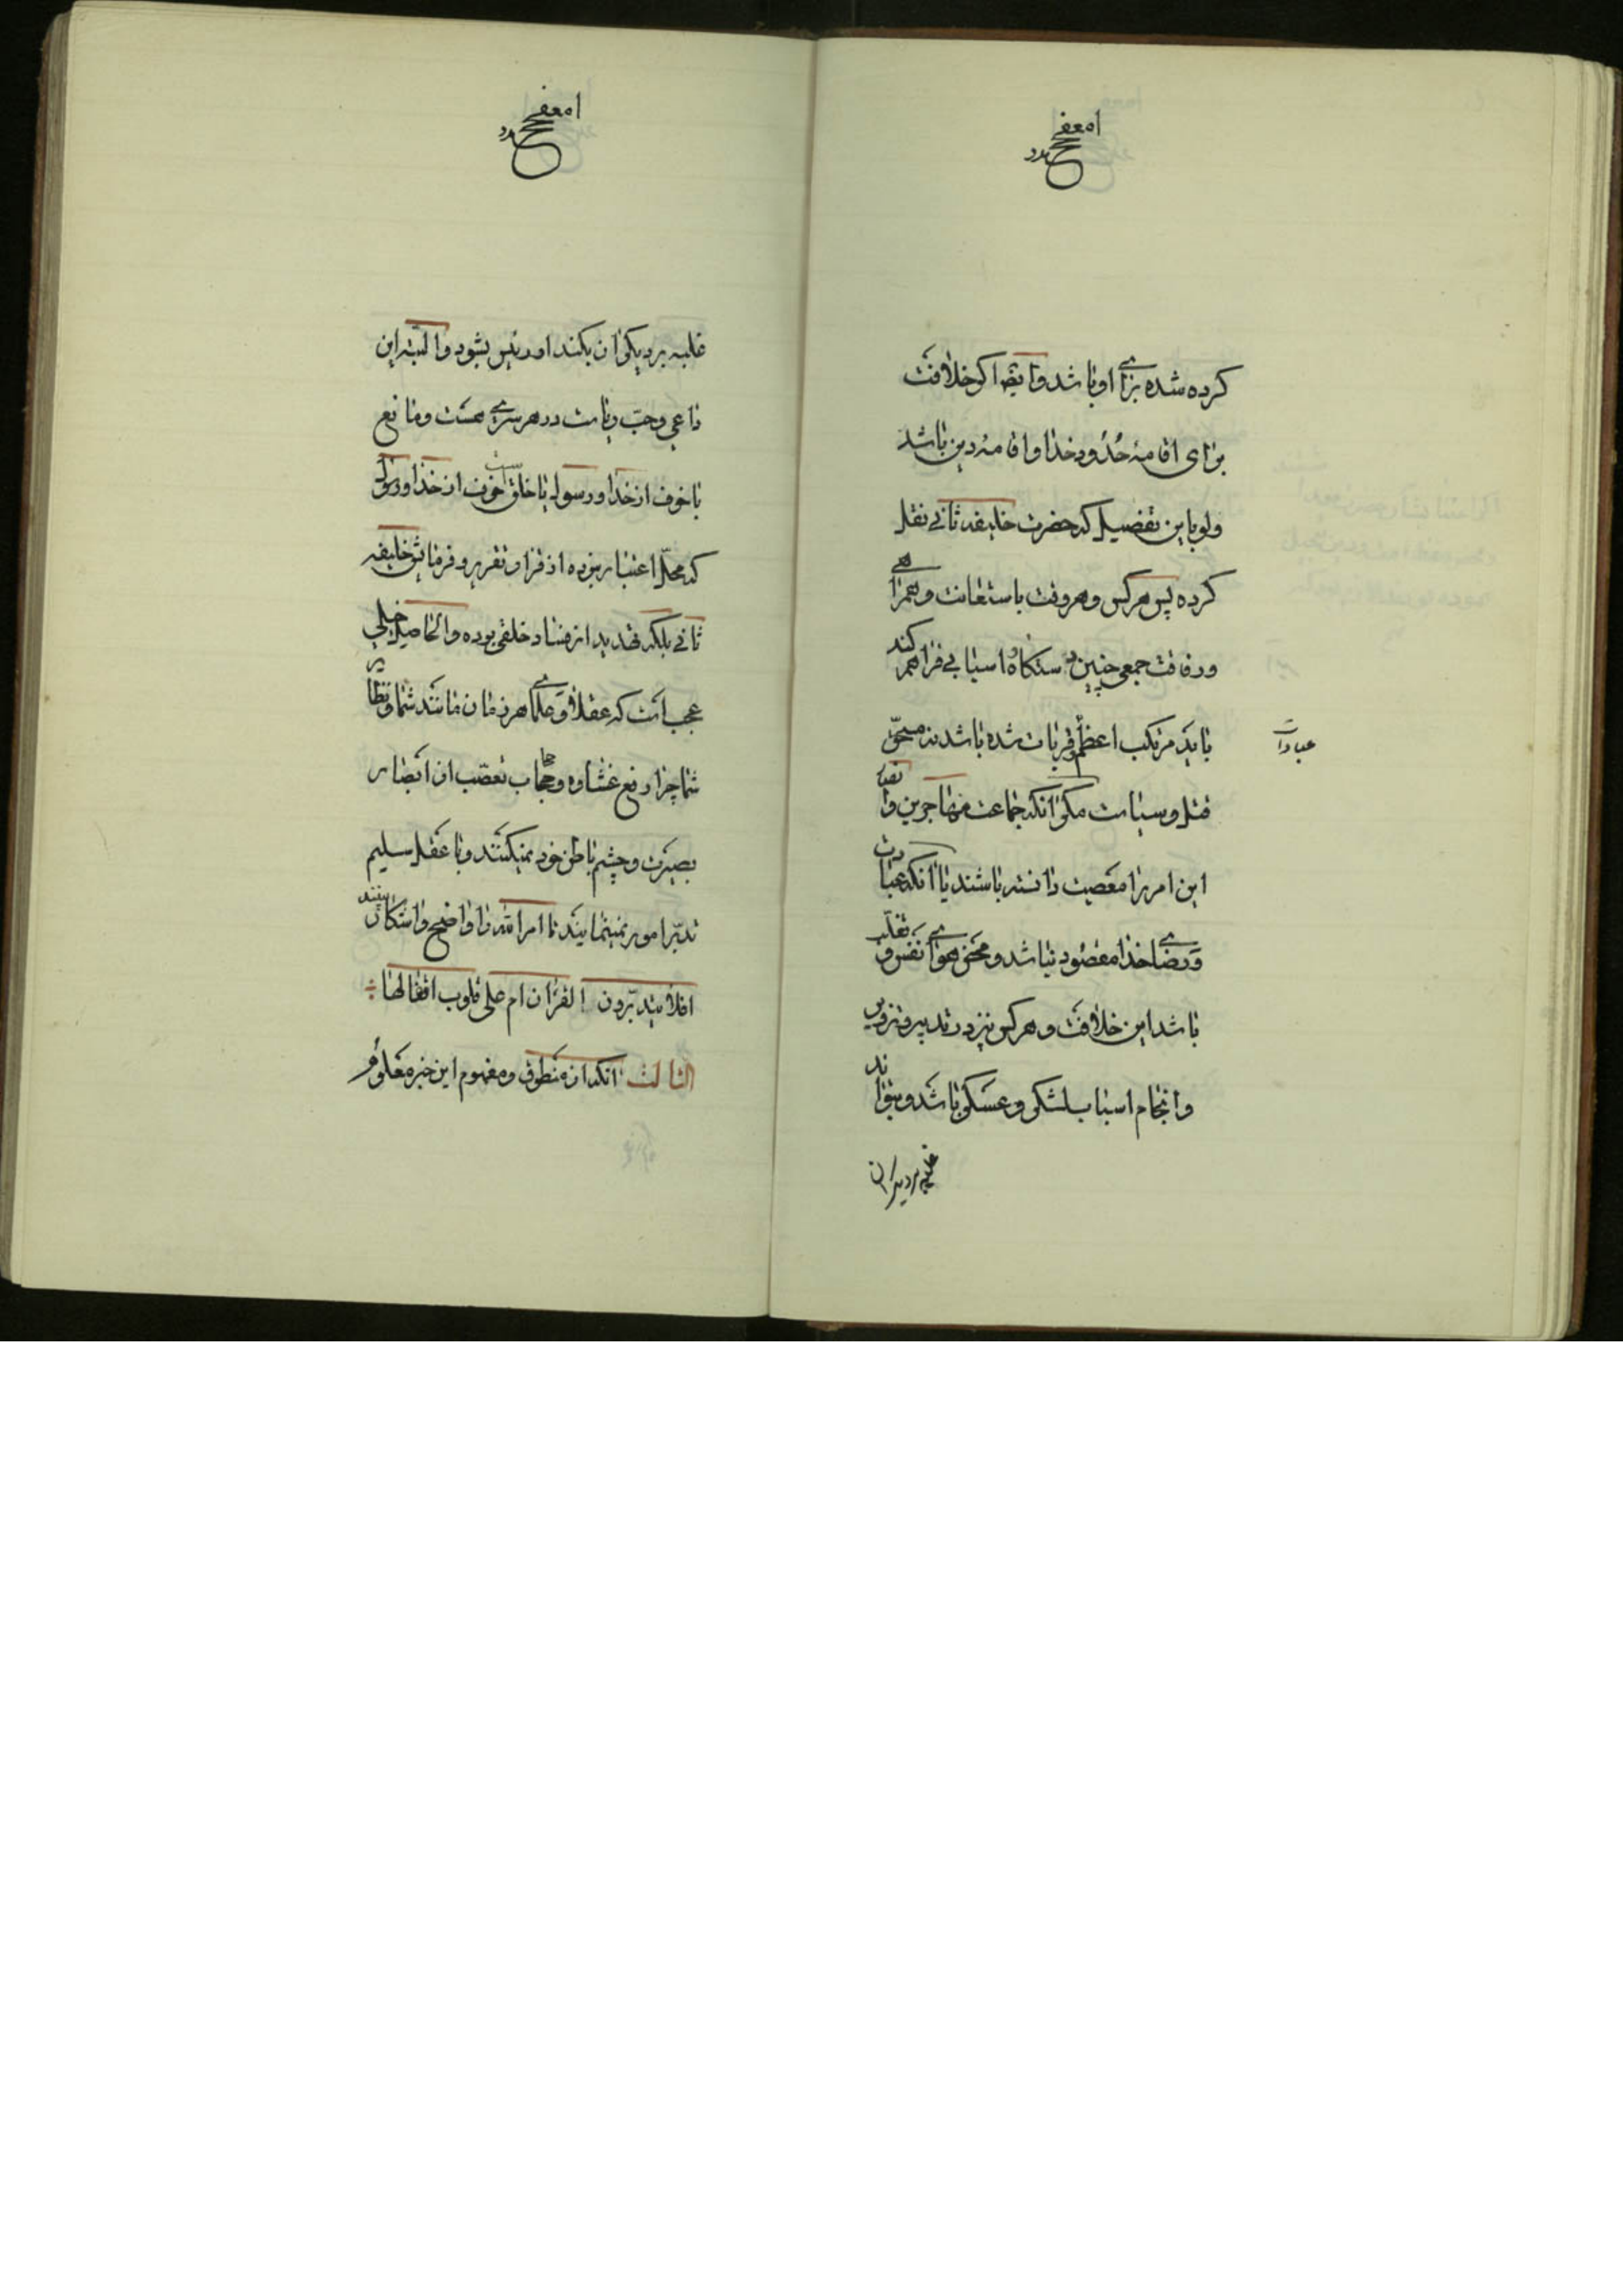 کرده شده برای او باشد و ایضا اکر خلافت
برای اقامهٔ حُدُود خدا و اقامهٔ دین باشد
ولو باین تفضیل که حضرت خلیفه ثانی نقل
کرده پس هرکس و هروقت باستعانت و همراهی
ورفاقت جمعی چنین دستکاه و اسبابی فراهم کند
باید مرتکب اعظم قربات شده باشد نه مستحقّ
عبادات
قتل و سیاست مکر آنکه جماعت مهاجرین و انصار
این امر را معصیت دانسته باشند یا آنکه عبادت
و رضای خدا مقصود نباشد و محض هوای نفس و تغلّب
باشد این خلافت و هرکس نیز در تدبیر و تزویر
و انجام اسباب لشکری و عسکری باشد و بتواند
غلبه بر دیکران
غلبه بر دیکران بکند او رئیس بشود و البتّه این
داعی و حبّ ریاست در هر سری هست و مانع
یا خوف از خدا و رسول یا خلق است خوف از خدا و رسول
که محلّ اعتبار نبوده از قرار تقریر و فرمایش خلیفه
ثانی بلکه تهدید از فساد خلقی بوده و الحاصل خیلی
عجب است که عقلا و علمای هر زمان مانند شما و نظایر
شما چرا رفع غشاوه و حجاب تعصّب از ابصار
بصیرت و چشم باطن خود نمیکنند و با عقل سلیم
تدبّر امور نمینمایند تا امر الله را واضح و اشکار بینند
افلا یتدبّرون القرآن ام علی قلوب اقفالها
الثالث آنکه از منطوق و مفهوم این خبر معلوم